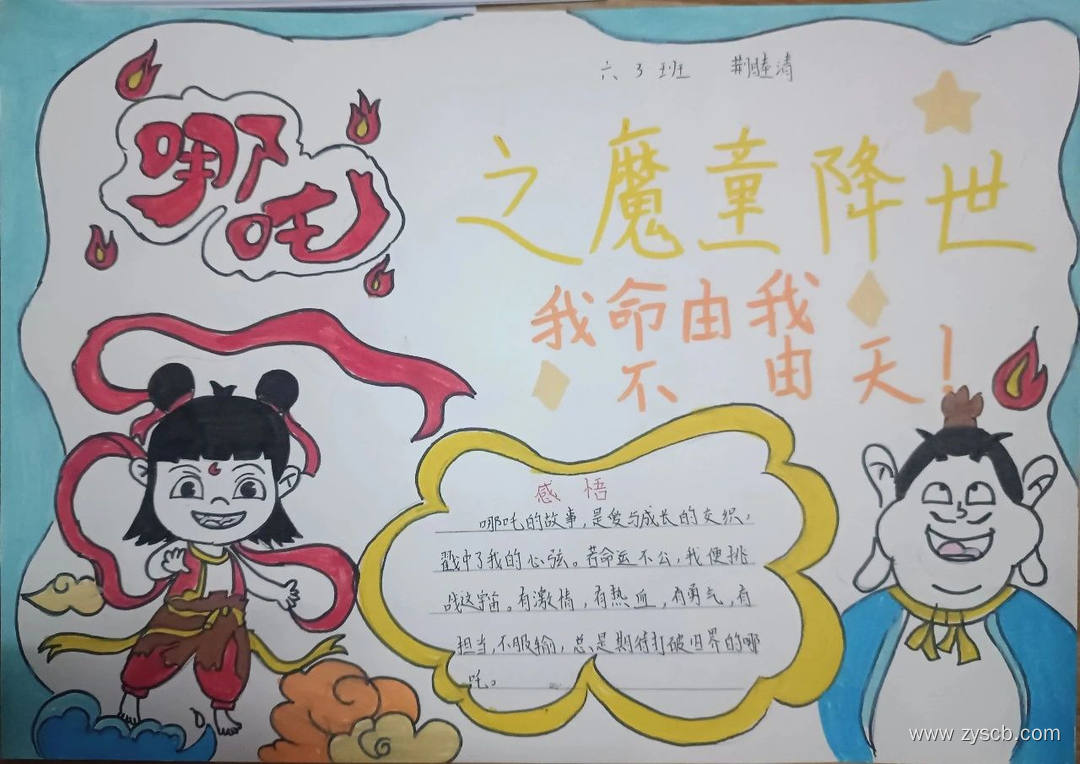 六3班 荆睦清
哪吒
之魔童降世
我命由我
不由天！
感悟
哪吒的故事，是爱与成长的交织，
戳中了我的心弦。若命运不公，我便挑
战这宇宙。有激情，有热血，有勇气，有
担当，不服输，总是期待打破旧界的哪
吒。
www.zyscb.com